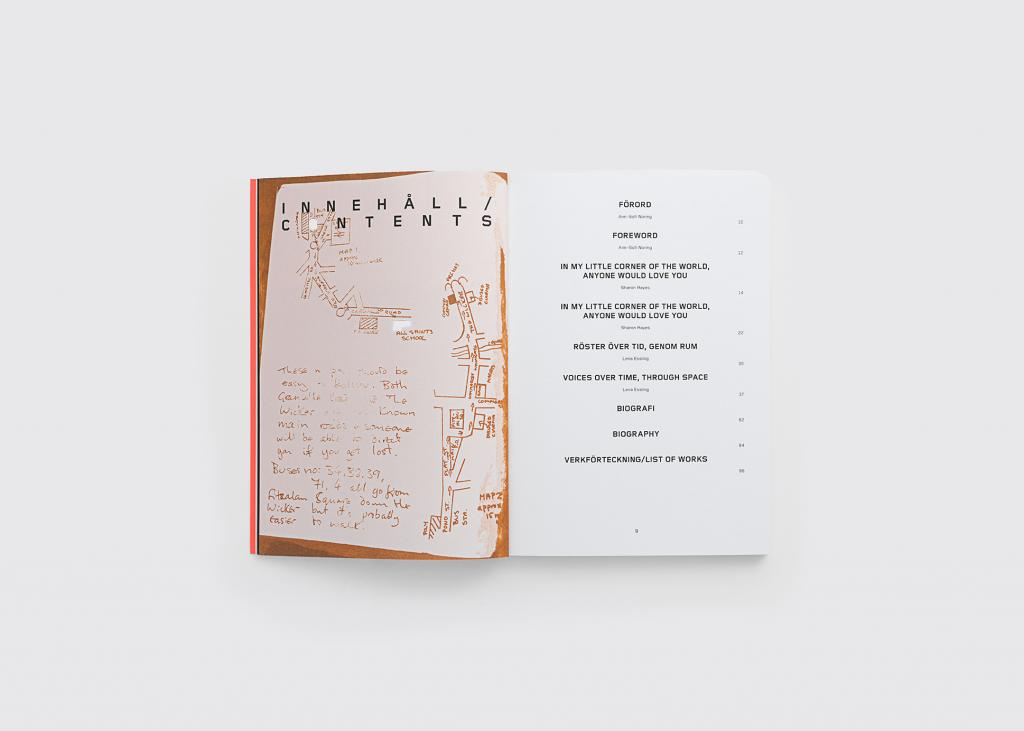 INNEHÅLL/
CONTENTS
MAP 1.
approx
ROAD
ALL SAINTS
SCHOOL
These should be
easy to follow. Both
Granville and The
Wicker are Known
main roads & someone
will be able to direct
you if you get lost.
Buses no: 39,
71, 4 all go from
Fitzalan Square down the
Wicker but it's probably
easier to walk.
FACTORY
DISUSED
CINEMA
PLAT ST.
POND ST.
BUS
STA.
POLY
MAP 2
approx
15 m
FÖRORD
Ann-Sofi Noring
10
FOREWORD
Ann-Sofi Noring
12
IN MY LITTLE CORNER OF THE WORLD,
ANYONE WOULD LOVE YOU
Sharon Hayes
14
IN MY LITTLE CORNER OF THE WORLD,
ANYONE WOULD LOVE YOU
Sharon Hayes
22
RÖSTER ÖVER TID, GENOM RUM
Lena Essling
30
VOICES OVER TIME, THROUGH SPACE
Lena Essling
37
BIOGRAFI
62
BIOGRAPHY
64
VERKFÖRTECKNING/LIST OF WORKS
66
9